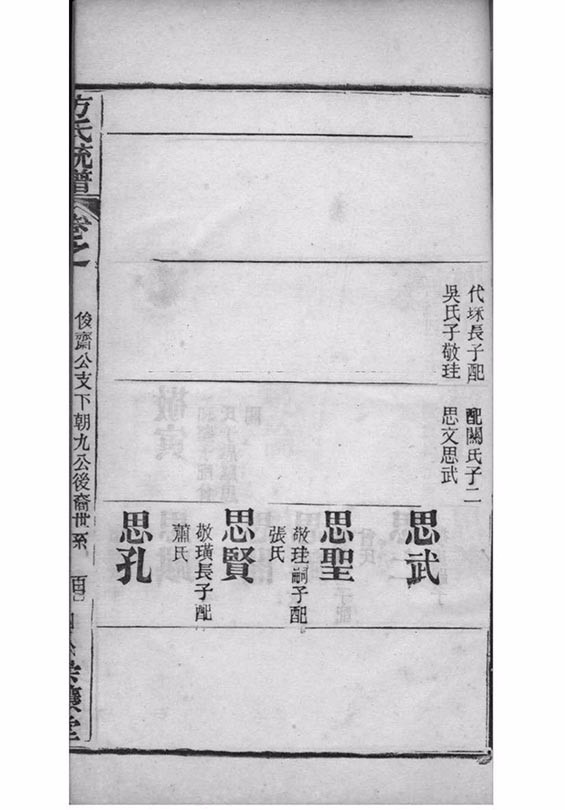 代琛長子配
吳氏子敬珪
配關氏子二
思文思武
思武
思聖
敬珪嗣子配
張氏
思賢
敬璜長子配
蕭氏
思孔
方氏統譜
卷之
俊齋公支下朝九公後裔世系